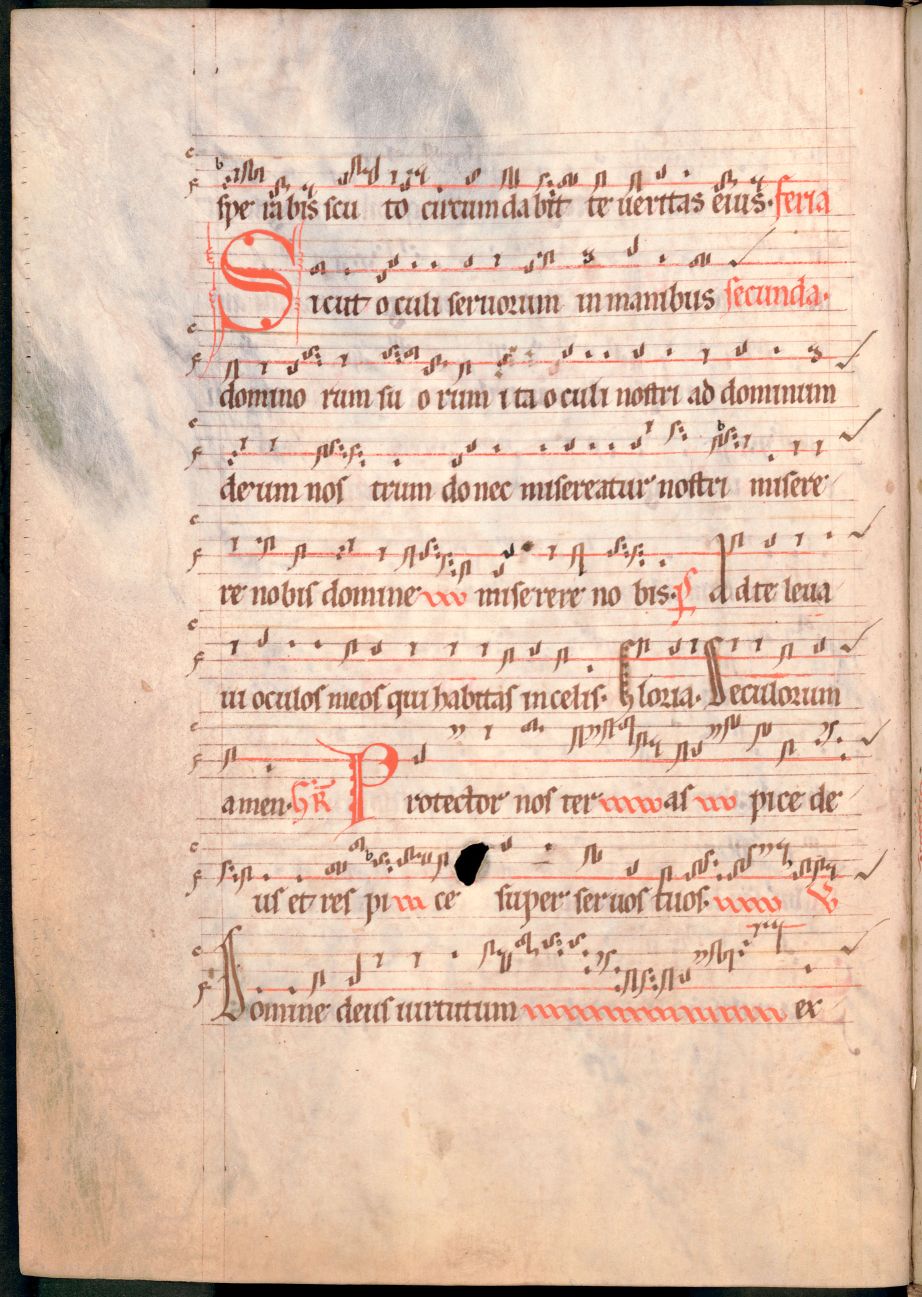 spe rabis scu to circumdabit te ueritas eius. feria
Sicut oculi seruorum in manibus secunda.
domino rum su o rum i ta oculi nostri ad dominum
deum nos trum donec misereatur nostri misere
re nobis domine miserere no bis. Ps Ad te leua
ui oculos meos qui habitas in celis. Gloria. Seculorum
amen. Gr Protector nos ter as pice de
us et res pi ce super seruos tuos. V
Domine deus uirtutum ex